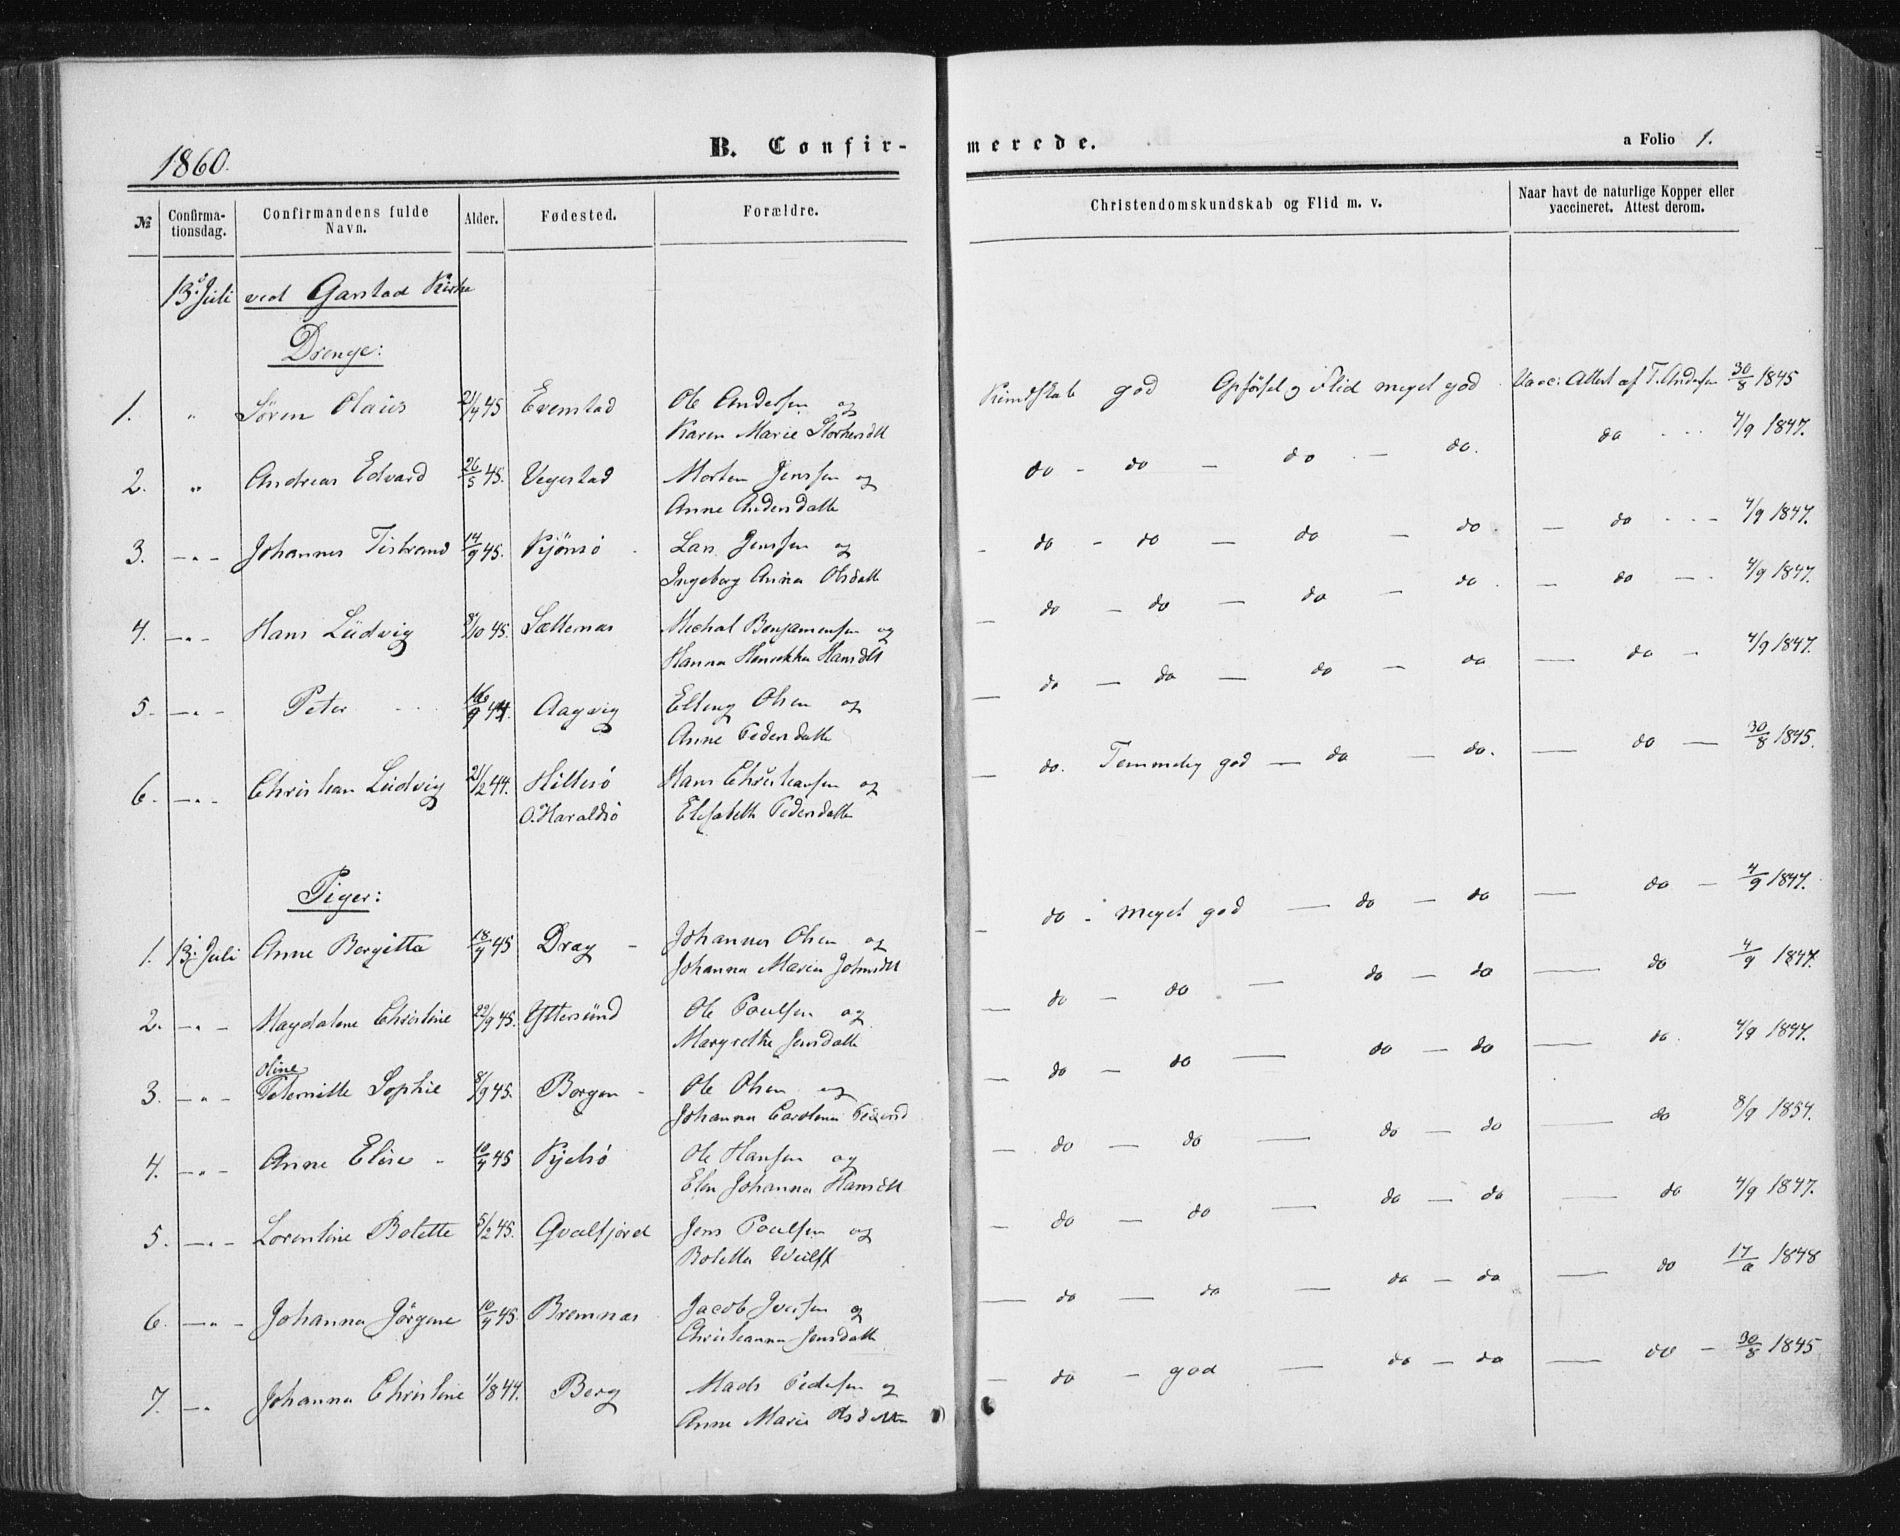 1860.
B. Confir-
merede.
a Folio 1.
№
Confirma-
tionsdag.
Confirmandens fulde
Navn.
Alder.
Fødested.
Forældre.
Christendomskundskab og Flid m. v.
Naar havt de naturlige Kopper eller
vaccineret. Attest derom.
13. Juli ved Garstad Kirke
Drenge:
1. " Søren Olaus 21/4 45 Evenstad Ole Andersen og
Karen Marie
Kundskab god Opførsel og Flid meget god Vacc: Attest af T. Andersen 30/8 1845
2. " Andreas Edvard 26/5 45. Vegestad Morten Jensen og
Anne Andersdatte
do - do - do - do. do 4/9 1847.
3. - " - Johannes Tistrand 14/9 45. Kjønsø Lars Jensen og
Ingeborg Anna Olsdatte
- do - do - do - do - do - 4/9 1847.
4. - " - Hans Ludvig 8/10 45. Sætternas Michal Benjamensen og
Hanna Henrikka Hansdtt
- do - do - do - do - do - 4/9 1847.
5. - " - Peter 16/9 44. Aagvig Elling Olsen og
Anne Pedersdatte
- do - do - do - do - do - 4/9 1847.
6. - " - Christian Ludvig 21/2 44. Hillesø Hans Christiansen og
O. Haraldsø Elisabeth Pedersdatte
- do. Temmelig god - do - do. - do - 30/8 1845.
Piger:
1. 13. Juli Anne Bergitta 18/4 45 Drag - Johannes Olsen og
Johanna Maria Johnsdtt
- do - meget god - do - do - do - 4/9 1847.
2. - " - Magdalene Christine 29/9 45. Yttersund Ole Paulsen og
Margrethe Jensdatte
- do - do - do - do - do 4/9 1847.
oline
3. - " - Peternille Sophie 8/9 45. Borgen - Ole Olsen og
Johanna Carolina
- do - do - do - do - do. 4/9 1847.
4. - " - Anne Elise - 10/4 45 Kjelsø Ole Hansen og
Elen Johanna Hansdtt
- do - do - do - do - do 8/9 1854.
5. - " - Lorentine Bolette 5/2 45. Qvalfjord Jens Paulsen og
Bolette Wulff
- do - do - do - do - do 4/9 1847.
6. - " - Johanna Jørgene 10/4 45. Bremnas Jacob Iversen og
Christianna Jensdatte
- do - do - do - do - do 1848
7. - " Johanna Christine 1/8 44. Berg Mads Pedersen og
Anne Marie Olsdatter
- do - god - do - do - do - 30/8 1845